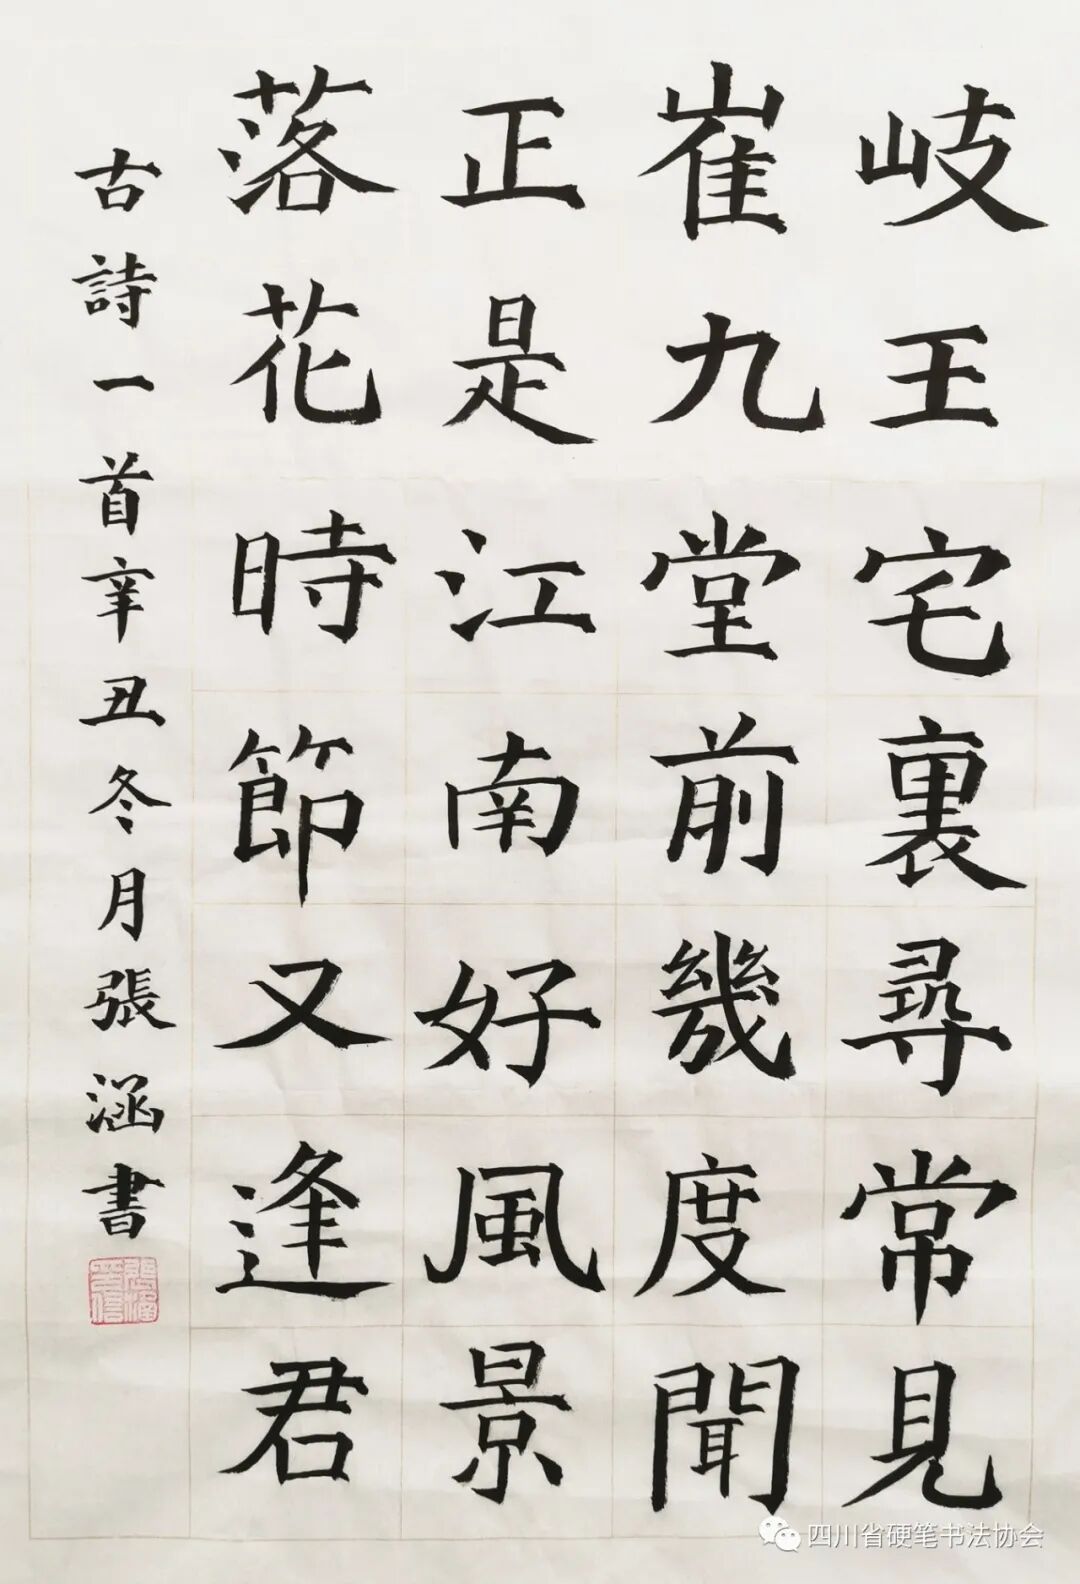 岐王宅裏尋常見
崔九堂前幾度聞
正是江南好風景
落花時節又逢君
古詩一首辛丑冬月張涵書
四川省硬笔书法协会